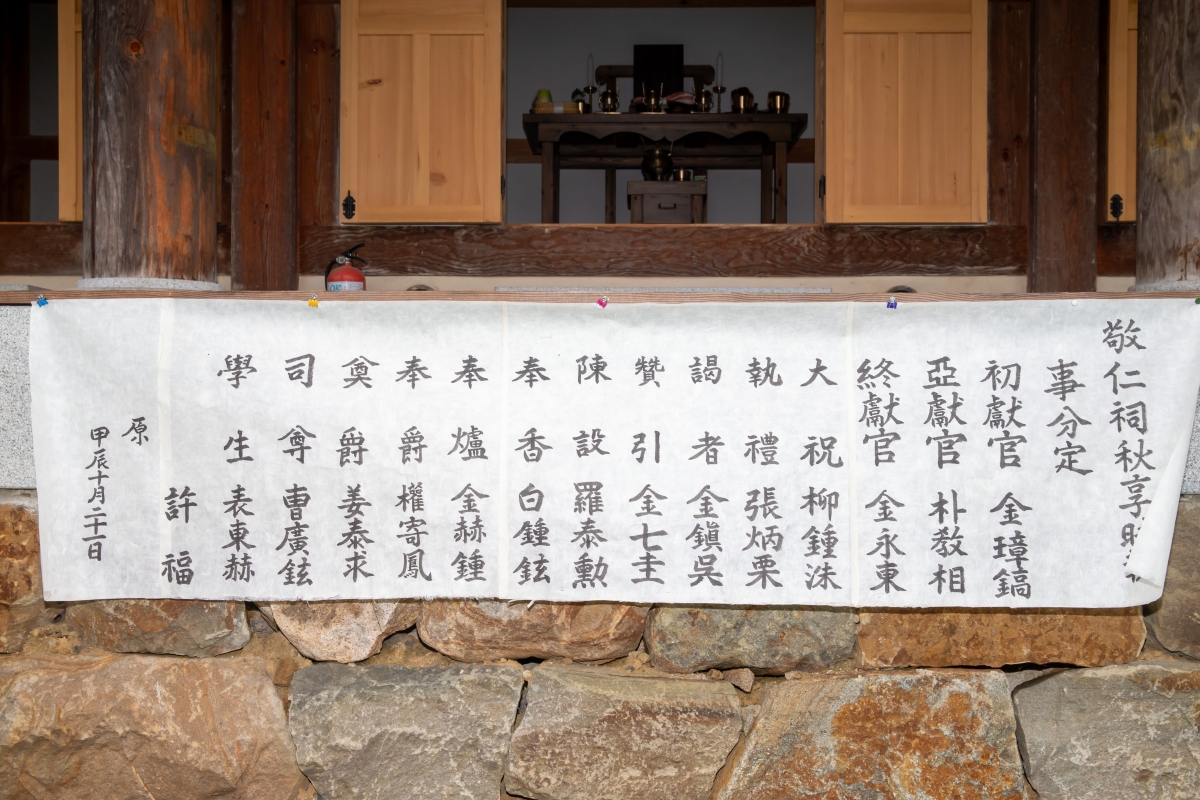 敬仁祠秋享時執
事分定
初獻官 金璋鎬
亞獻官 朴敎相
終獻官 金永東
大祝 柳鍾洙
執禮 張炳栗
謁者 金鎭吳
贊引 金七圭
陳設 羅泰勳
奉香 白鍾鉉
奉爐 金赫鍾
奉爵 權寄鳳
奠爵 姜泰求
司尊 曺廣鉉
學生 表東赫
許福
原
甲辰十月二十一日